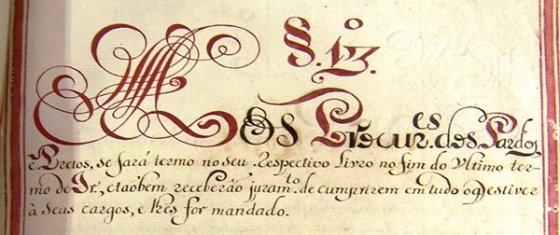 §. 13.º
Aos Procur.es dos Pardos,
e Pretos, se fará termo no seu Respectivo Livro no fim do Vltimo ter-
mo de Ir.s, e taõbem receberão juram.to de cumprirem em tudo o q̃ estiver
à seus cargos, e lhes for mandado.